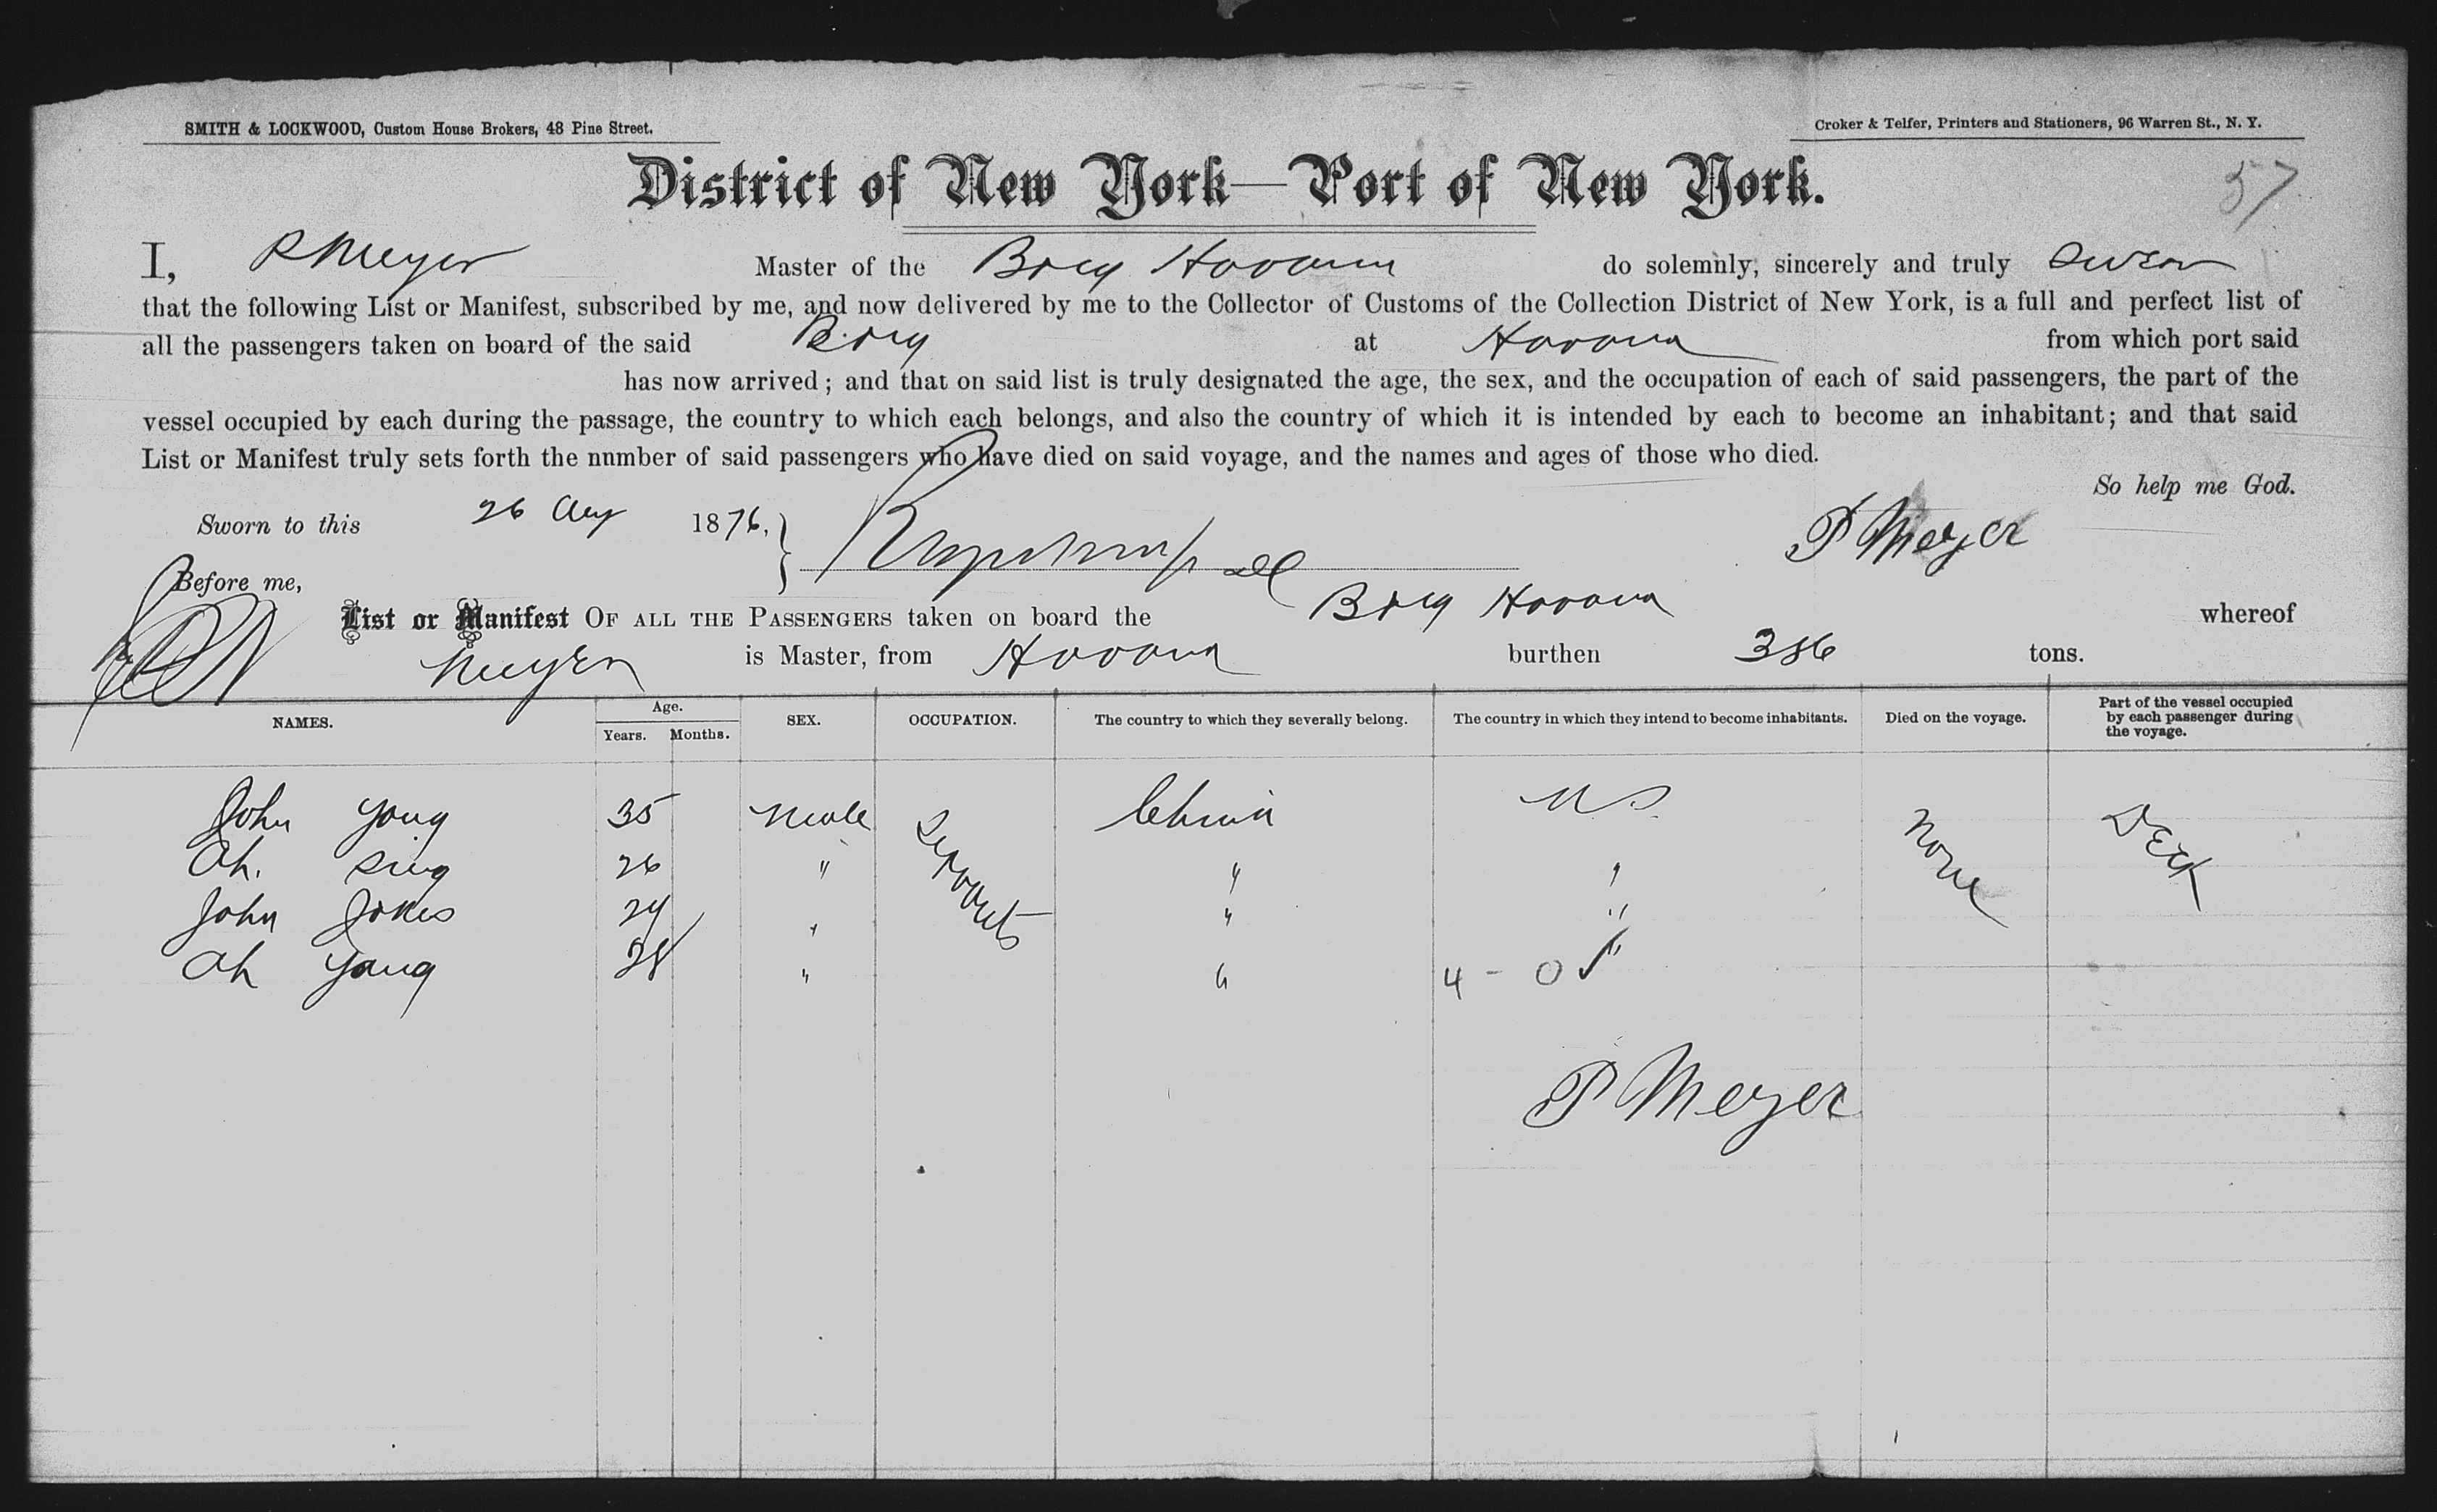 SMITH & LOCKWOOD, Custom House Brokers, 48 Pine Street.
Croker & Telfer, Printers and Stationers, 96 Warren St., N. Y.
District of New York—Port of New York.
57
I, P Meyer Master of the Brig Havana do solemnly, sincerely and truly swear
that the following List or Manifest, subscribed by me, and now delivered by me to the Collector of Customs of the Collection District of New York, is a full and perfect list of
all the passengers taken on board of the said Brig at Havana from which port said
has now arrived; and that on said list is truly designated the age, the sex, and the occupation of each of said passengers, the part of the
vessel occupied by each during the passage, the country to which each belongs, and also the country of which it is intended by each to become an inhabitant; and that said
List or Manifest truly sets forth the nnmber of said passengers who have died on said voyage, and the names and ages of those who died.
So help me God.
Sworn to this 26 Aug 1876, P Meyer
Before me,
List or Manifest OF ALL THE PASSENGERS taken on board the Brig Havana whereof
Meyer is Master, from Havana burthen 386 tons.
NAMES. Age. Years. Months. SEX. OCCUPATION. The country to which they severally belong. The country in which they intend to become inhabitants. Died on the voyage. Part of the vessel occupied by each passenger during the voyage.
John Yong 35 Male Servants China U S None Deck
Ah. Sing 26 " " "
John Jokes 24 " " "
Ah Yong 28 " " "
4 - 0 ✓
P Meyer